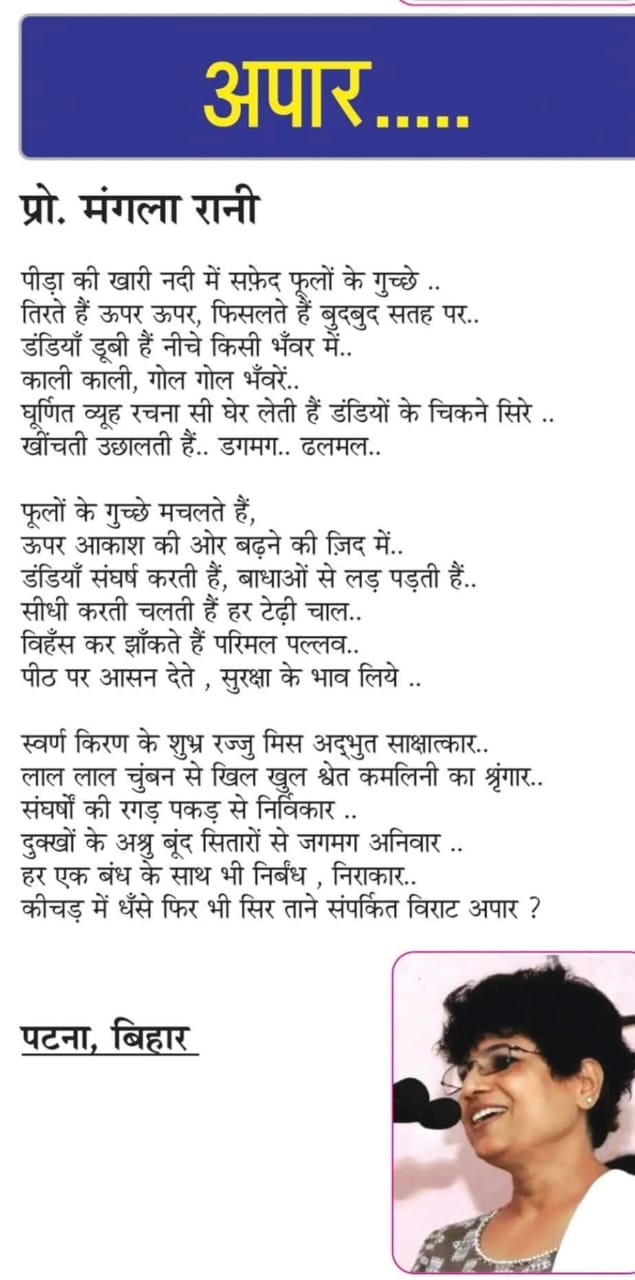 अपार.....
प्रो. मंगला रानी
पीड़ा की खारी नदी में सफ़ेद फूलों के गुच्छे ..
तिरते हैं ऊपर ऊपर, फिसलते हैं बुदबुद सतह पर..
डंडियाँ डूबी हैं नीचे किसी भँवर में..
काली काली, गोल गोल भँवरें..
घूर्णित व्यूह रचना सी घेर लेती हैं डंडियों के चिकने सिरे ..
खींचती उछालती हैं.. डगमग.. ढलमल..
फूलों के गुच्छे मचलते हैं,
ऊपर आकाश की ओर बढ़ने की ज़िद में..
डंडियाँ संघर्ष करती हैं, बाधाओं से लड़ पड़ती हैं..
सीधी करती चलती हैं हर टेढ़ी चाल..
विहँस कर झाँकते हैं परिमल पल्लव..
पीठ पर आसन देते , सुरक्षा के भाव लिये ..
स्वर्ण किरण के शुभ्र रज्जु मिस अद्भुत साक्षात्कार..
लाल लाल चुंबन से खिल खुल श्वेत कमलिनी का श्रृंगार..
संघर्षों की रगड़ पकड़ से निर्विकार ..
दुक्खों के अश्रु बूंद सितारों से जगमग अनिवार ..
हर एक बंध के साथ भी निर्बंध , निराकार..
कीचड़ में धँसे फिर भी सिर ताने संपर्कित विराट अपार ?
पटना, बिहार